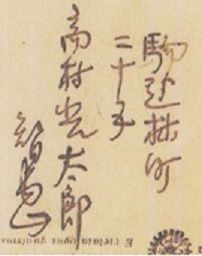 駒込林町
二十五
高村光太郎
智恵